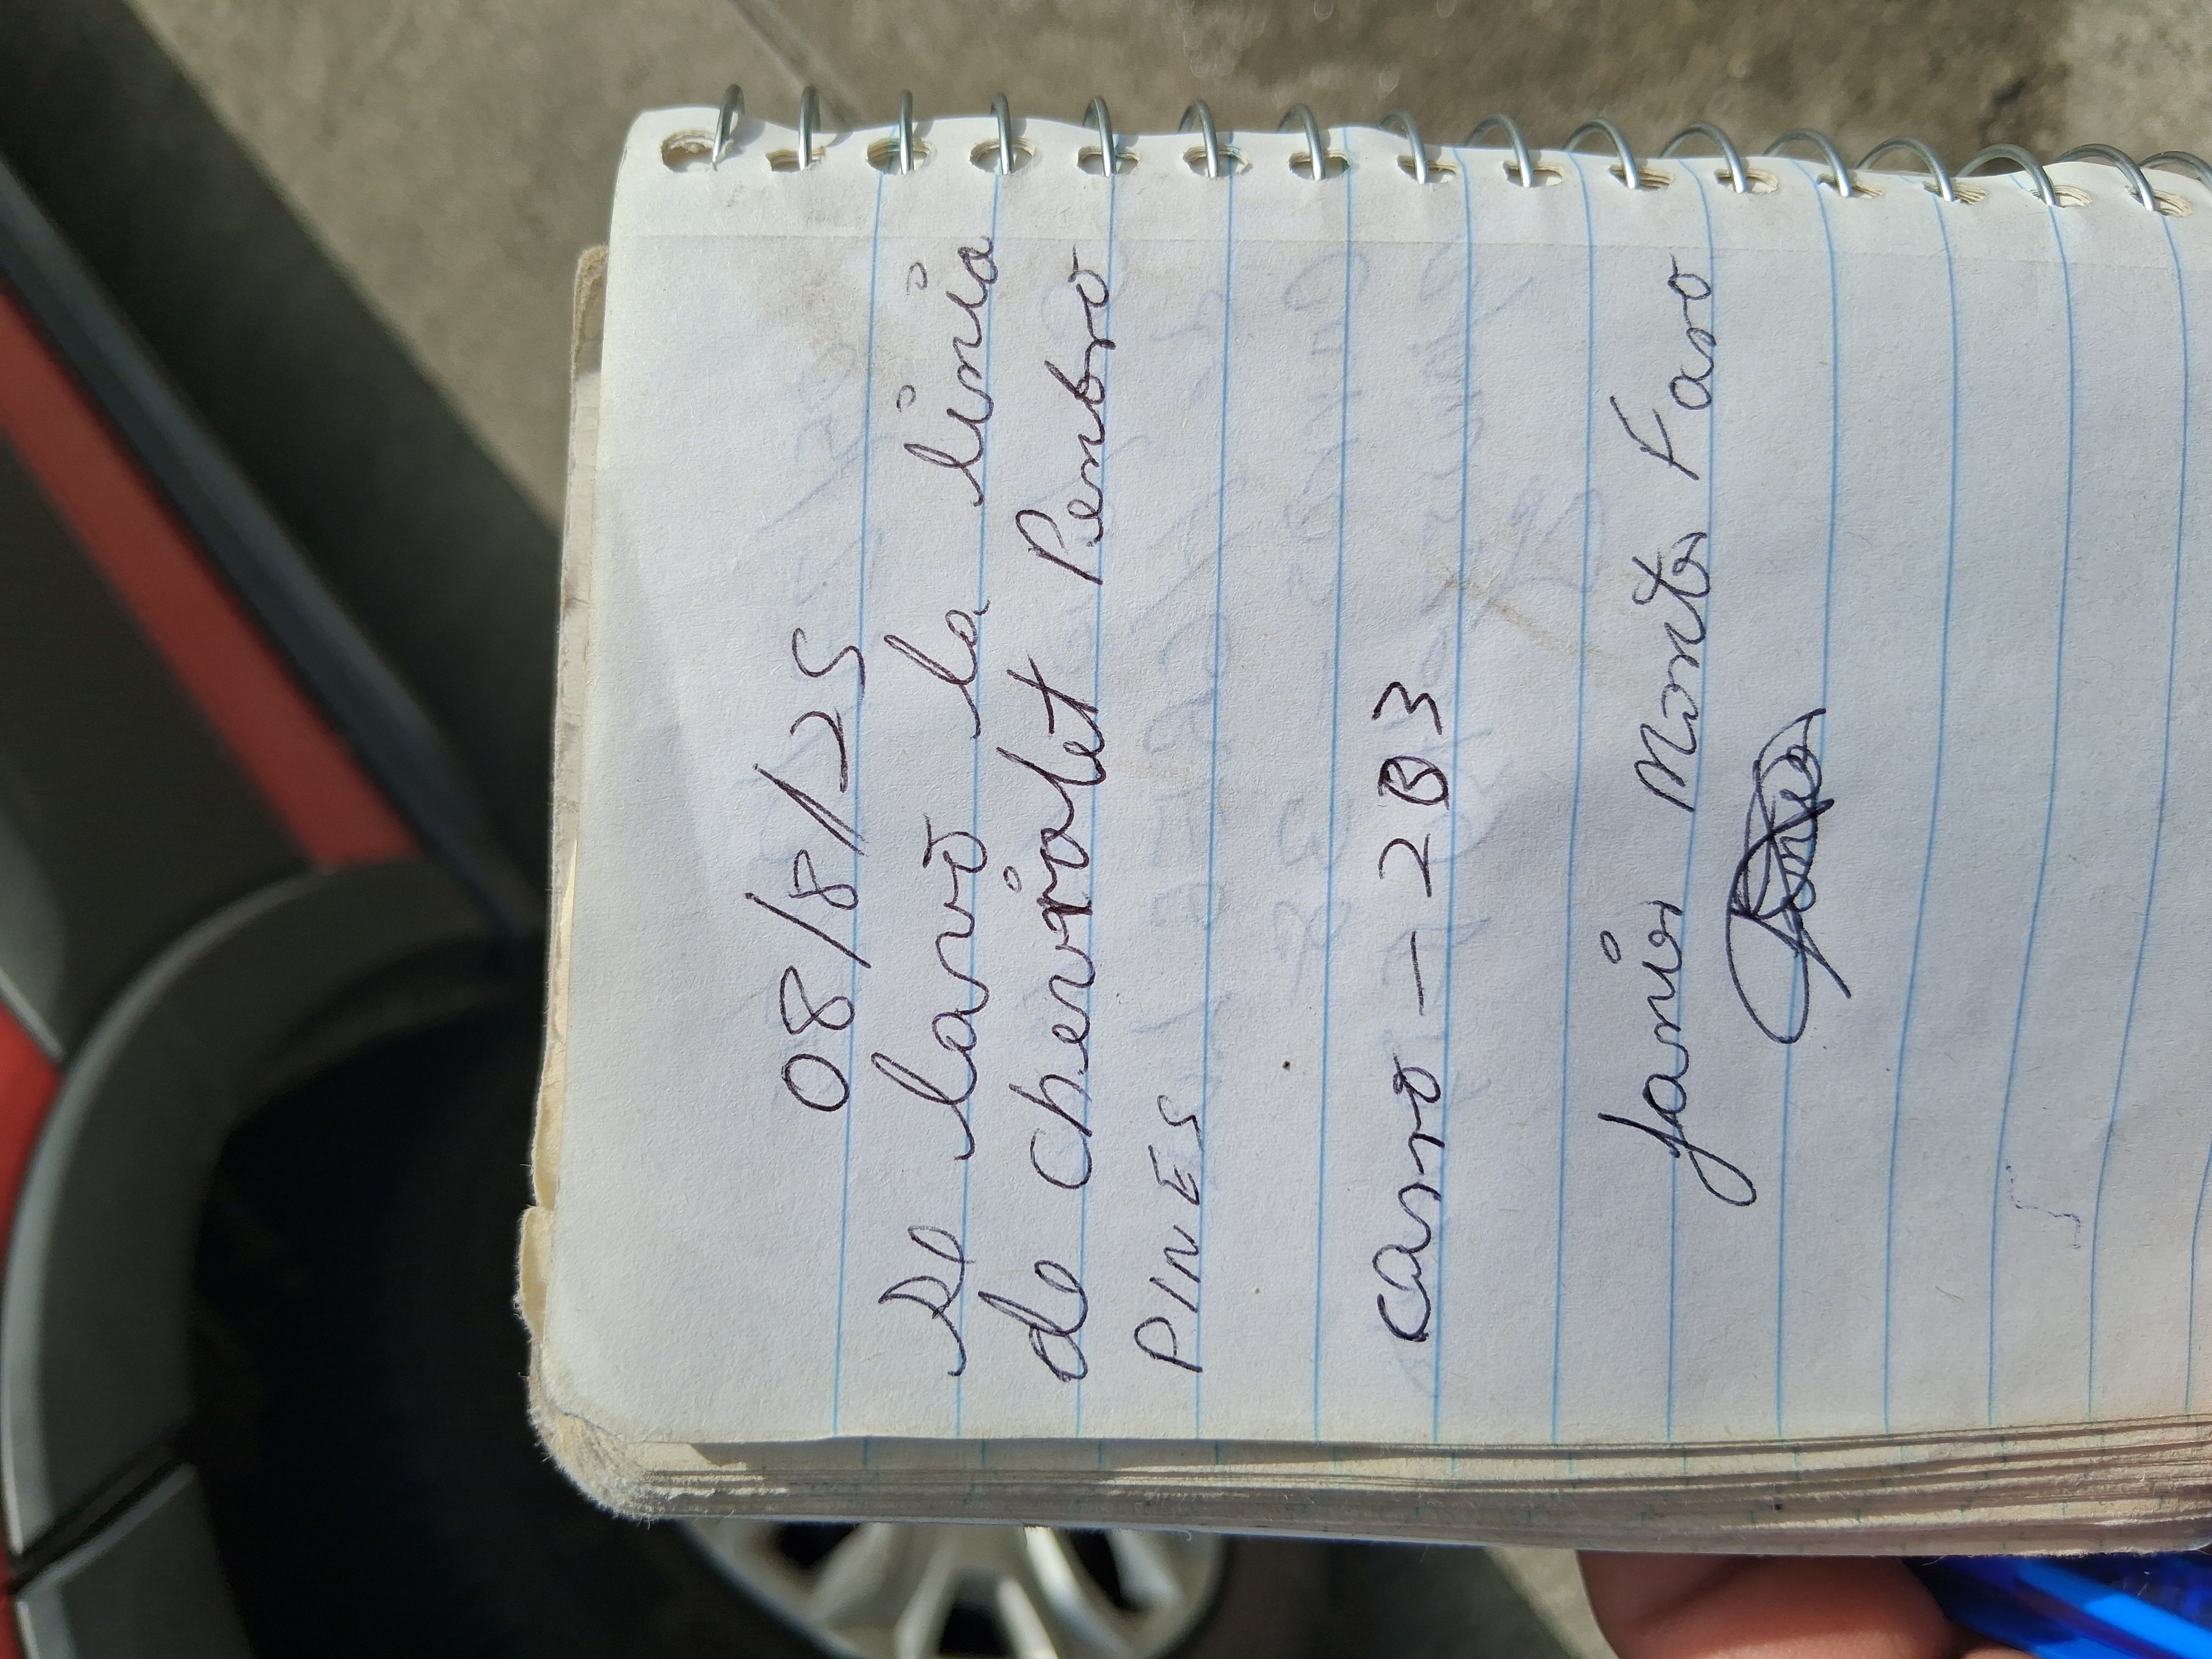 08/8/25
Se lavó la linia
de chevrolet Penbro
PINES
carro - 203
Janier Monter Faro